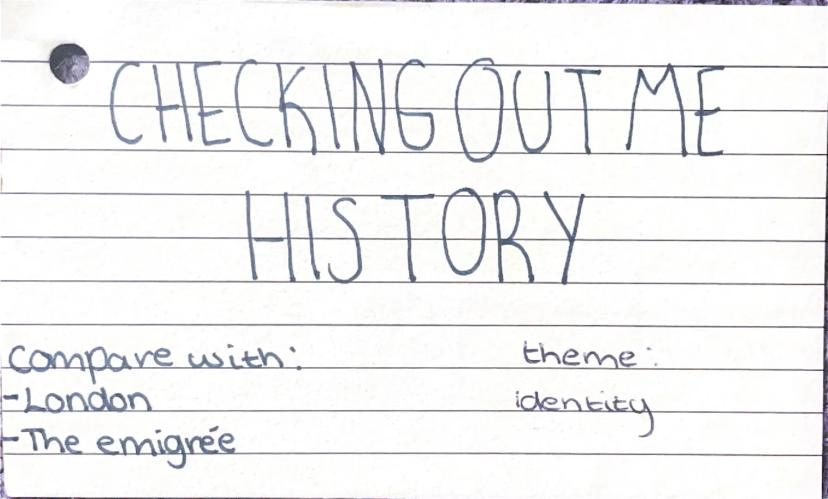 CHECKING OUT ME
HISTORY
compare with:
-London
-The emigrée
theme:
identity